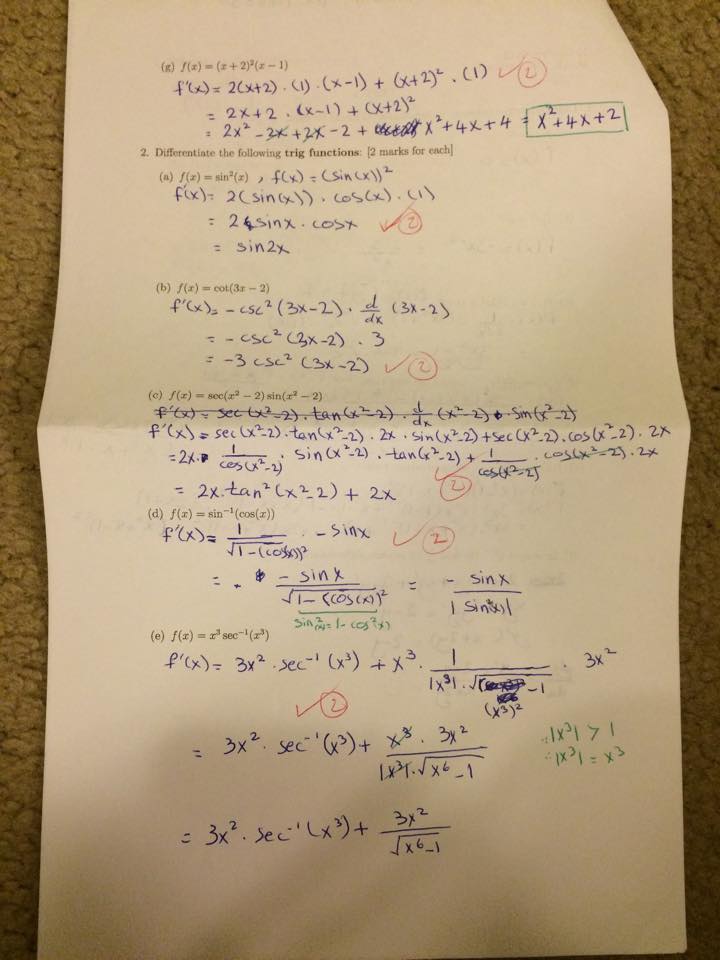 (g) f(x) = (x + 2)²(x − 1)
f'(x) = 2(x+2) · (1) · (x-1) + (x+2)² · (1) ✓ 2
= 2x+2 · (x-1) + (x+2)²
= 2x² - 2x + 2x - 2 + x² + 4x + 4 = x² + 4x + 2
2. Differentiate the following trig functions: [2 marks for each]
(a) f(x) = sin²(x) , f(x) = (sin(x))²
f'(x) = 2(sin(x)) · cos(x) · (1)
= 2 sinx · cosx ✓ 2
= sin2x
(b) f(x) = cot(3x − 2)
f'(x) = - csc² (3x-2) · d/dx (3x-2)
= - csc² (3x-2) · 3
= -3 csc² (3x-2) ✓ 2
(c) f(x) = sec(x² − 2) sin(x² − 2)
f'(x) = sec (x²-2) · tan(x²-2) · d/dx (x²-2) · sin(x²-2)
f'(x) = sec(x²-2) · tan(x²-2) · 2x · sin(x²-2) + sec(x²-2) · cos(x²-2) · 2x
= 2x · 1/cos(x²-2) · sin(x²-2) · tan(x²-2) + 1/cos(x²-2) · cos(x²-2) · 2x
= 2x · tan²(x²-2) + 2x ✓ 2
(d) f(x) = sin⁻¹(cos(x))
f'(x) = 1/√(1-(cos(x))²) · -sinx ✓ 2
= - sinx/√(1-(cos(x))²) = - sinx/|sin(x)|
sin²(x) = 1 - cos²(x)
(e) f(x) = x³ sec⁻¹(x³)
f'(x) = 3x² · sec⁻¹ (x³) + x³ · 1/(|x³| · √((x³)² - 1)) · 3x²
✓ 2
= 3x² · sec⁻¹(x³) + x³ · 3x²/(|x³| · √(x⁶ - 1)) ∵ |x³| > 1
∴ |x³| = x³
= 3x² · sec⁻¹(x³) + 3x²/√(x⁶-1)